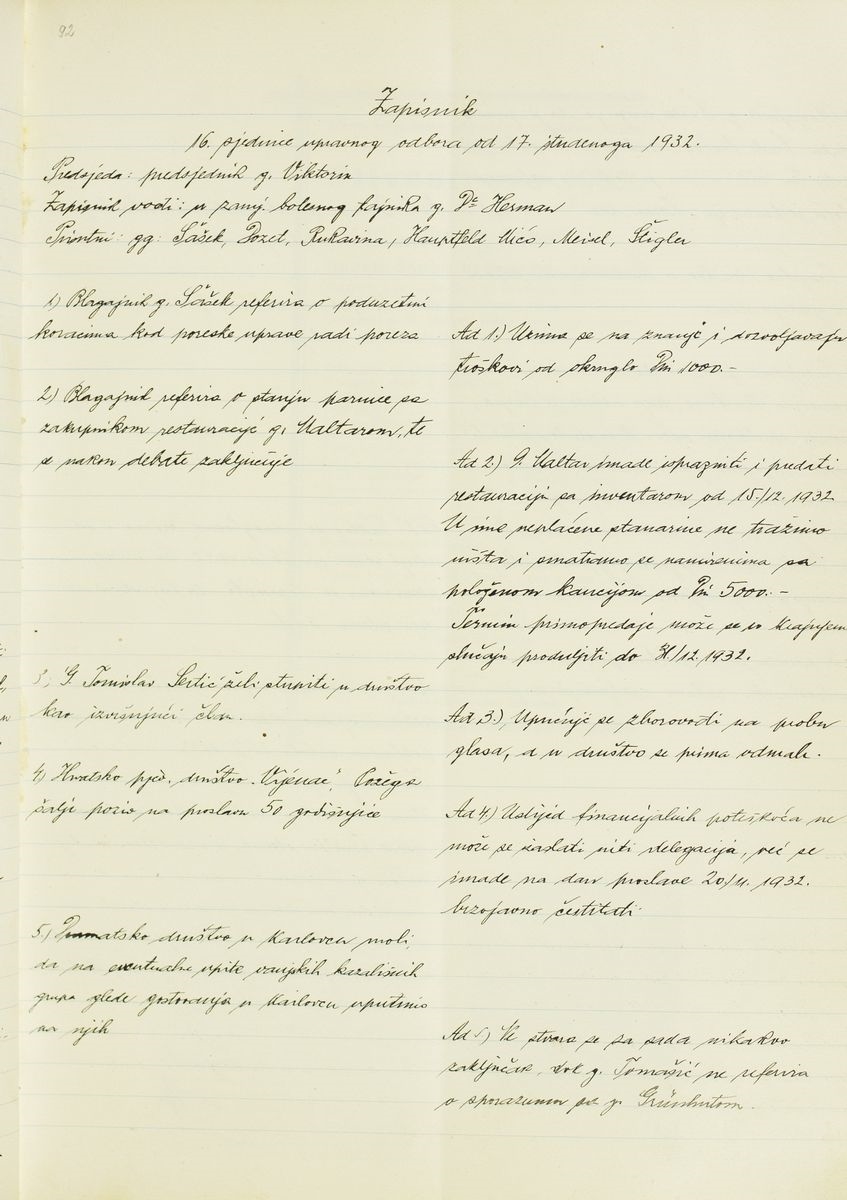 92
Zapisnik
16. sjednice upravnog odbora od 17. studenoga 1932.
Predsjeda: predsjednik g. Viktorin
Zapisnik vodi: u zamj. bolesnog tajnika g. Dr Herman
Prisutni: gg: Šášek, Dozet, Rukavina, Hauptfeld Mićo, Meisel, Štigler
1) Blagajnik g. Šášek referira o poduzetim
koracima kod poreske uprave radi poreza
Ad 1.) Uzima se na znanje i dozvoljavaju
troškovi od okruglo Din 1000.-
2) Blagajnik referira o stanju parnice sa
zakupnikom restauracije g. Maltarom, te
se nakon debate zaključuje
Ad 2.) G. Maltar imade isprazniti i predati
restauraciju sa inventarom od 15./12. 1932
U ime neplaćene stanarine ne tražimo
ništa i smatramo se namirenima sa
položenom kaucijom od Din 5000.-
Termin primopredaje može se u krajnjem
slučaju produljiti do 31/12. 1932.
3, G. Tomislav Sertić želi stupiti u društvo
kao izvršujući član.
Ad 3.) Upućuje se zborovođi na probu
glasa, a u društvo se prima odmah.
4) Hrvatsko pjev. društvo "Vijenac", Požega
šalje poziv na proslavu 50 godišnjice
Ad 4.) Uslijed financijalnih poteškoća ne
može se izaslati niti delegacija, već se
imade na dan proslave 20/11. 1932.
brzojavno čestitati.
5.) Dramatsko društvo u Karlovcu moli,
da na eventualne upite vanjskih kazališnih
grupa glede gostovanja u Karlovcu uputimo
na njih
Ad 5) Ne stvara se za sada nikakvo
zaključak, dok g. Tomašić ne referira
o sporazumu sa g. Grünhutom.